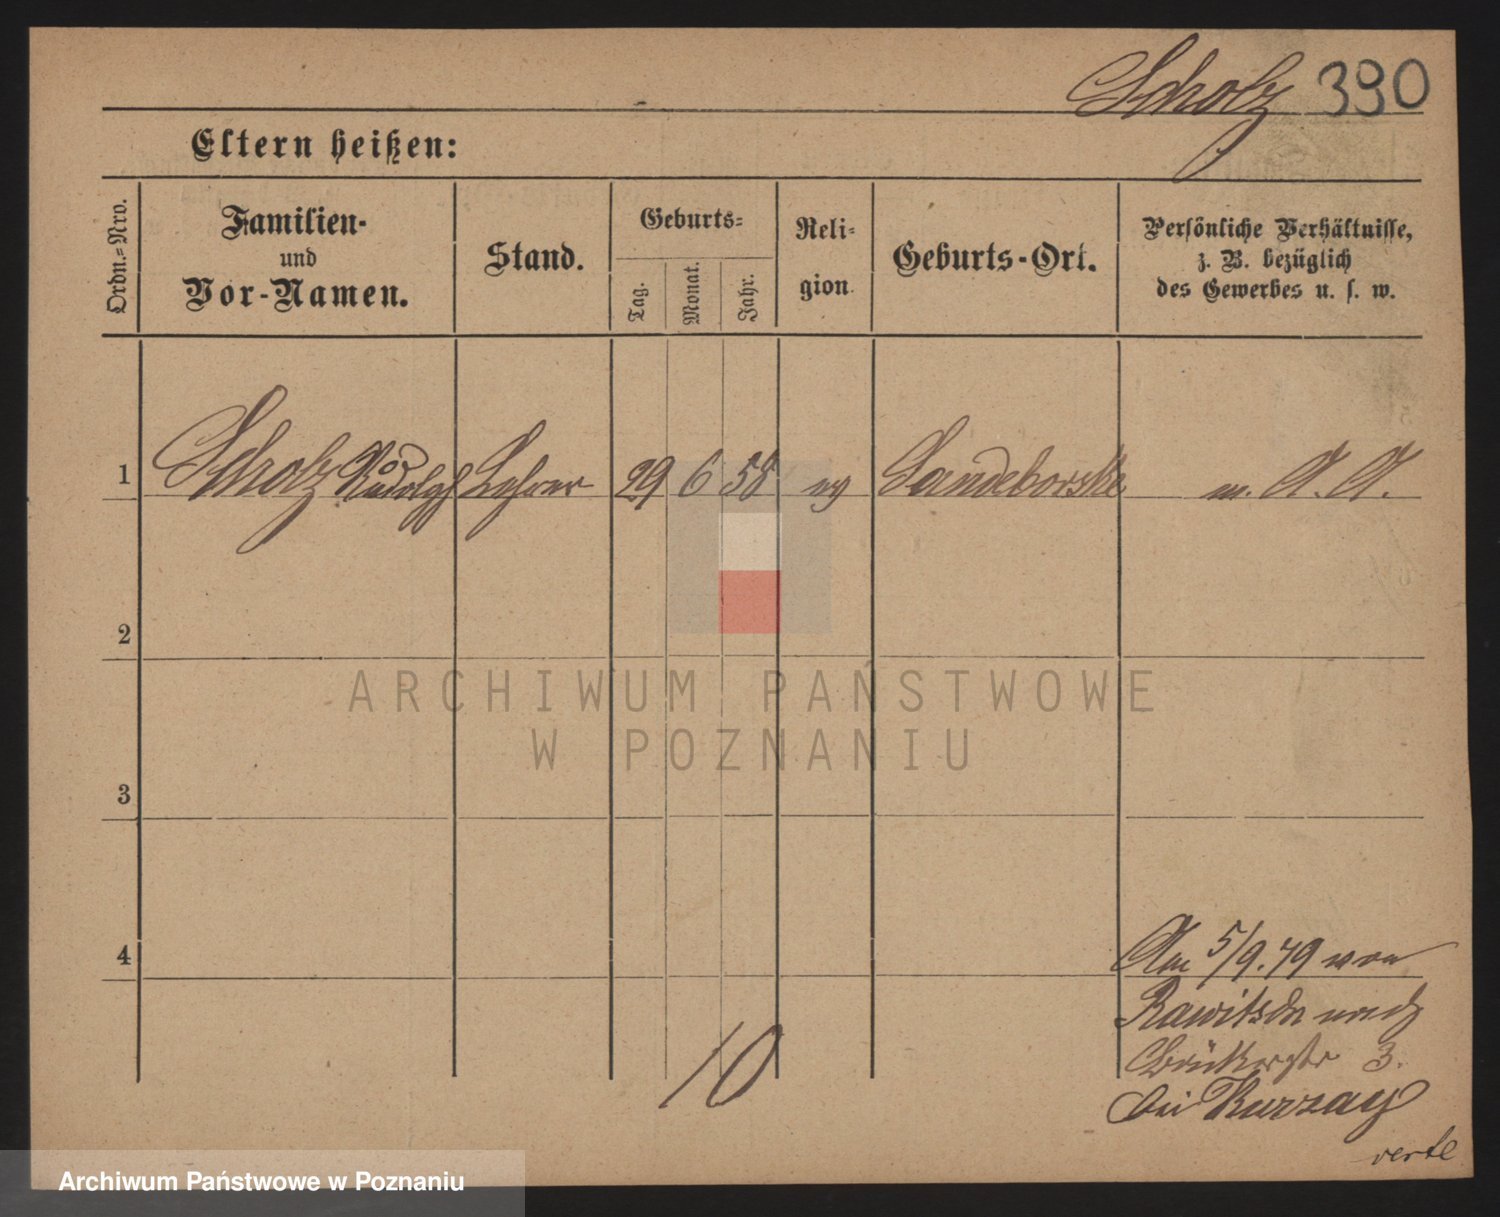 Scholz 390
Eltern heißen:
Ordn.=Nro.
Familien-
und
Vor-Namen.
Stand.
Geburts=
Tag.
Monat.
Jahr.
Reli=
gion.
Geburts-Ort.
Persönliche Verhältnisse,
z. B. bezüglich
des Gewerbes u. s. w.
1 Scholz Rudolph Lehrer 29 6 58 ev Sandeborske m. A. A.
2
3
4
Am 5/9.79 von
Rawitsch nach
3.
bei Kurzay
10
verte
ARCHIWUM PAŃSTWOWE
W POZNANIU
Archiwum Państwowe w Poznaniu